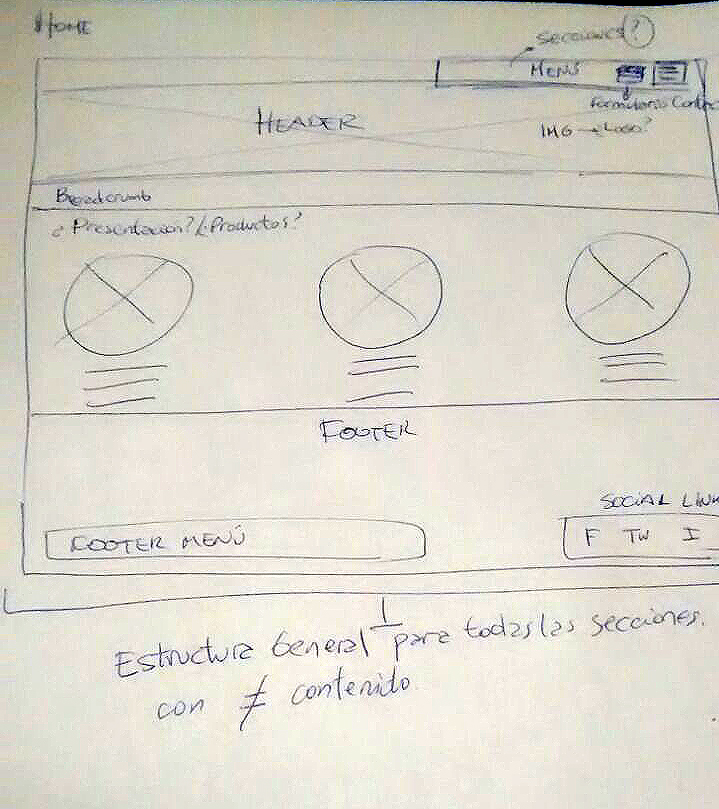 HOME
Secciones?
MENÚ
Formulario Conta
HEADER
IMG → Logo?
Breadcrumb
¿Presentacion?/¿Productos?
FOOTER
SOCIAL LINK
FOOTER MENÚ
F TW I
Estructura General para todas las secciones.
con ≠ contenido